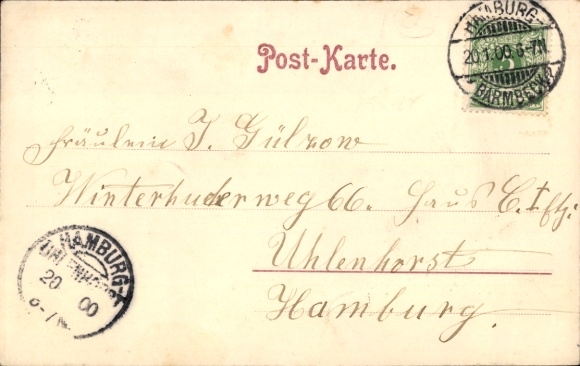 HAMBURG-
20.1.00.6-7N.
BARMBECK
5
Post-Karte.
Fräulein T. Gülzow
Winterhuderweg 66. Haus C. I Etg:
Uhlenhorst
Hamburg.
HAMBURG-
UHLENHORST
20 00
6-7N.